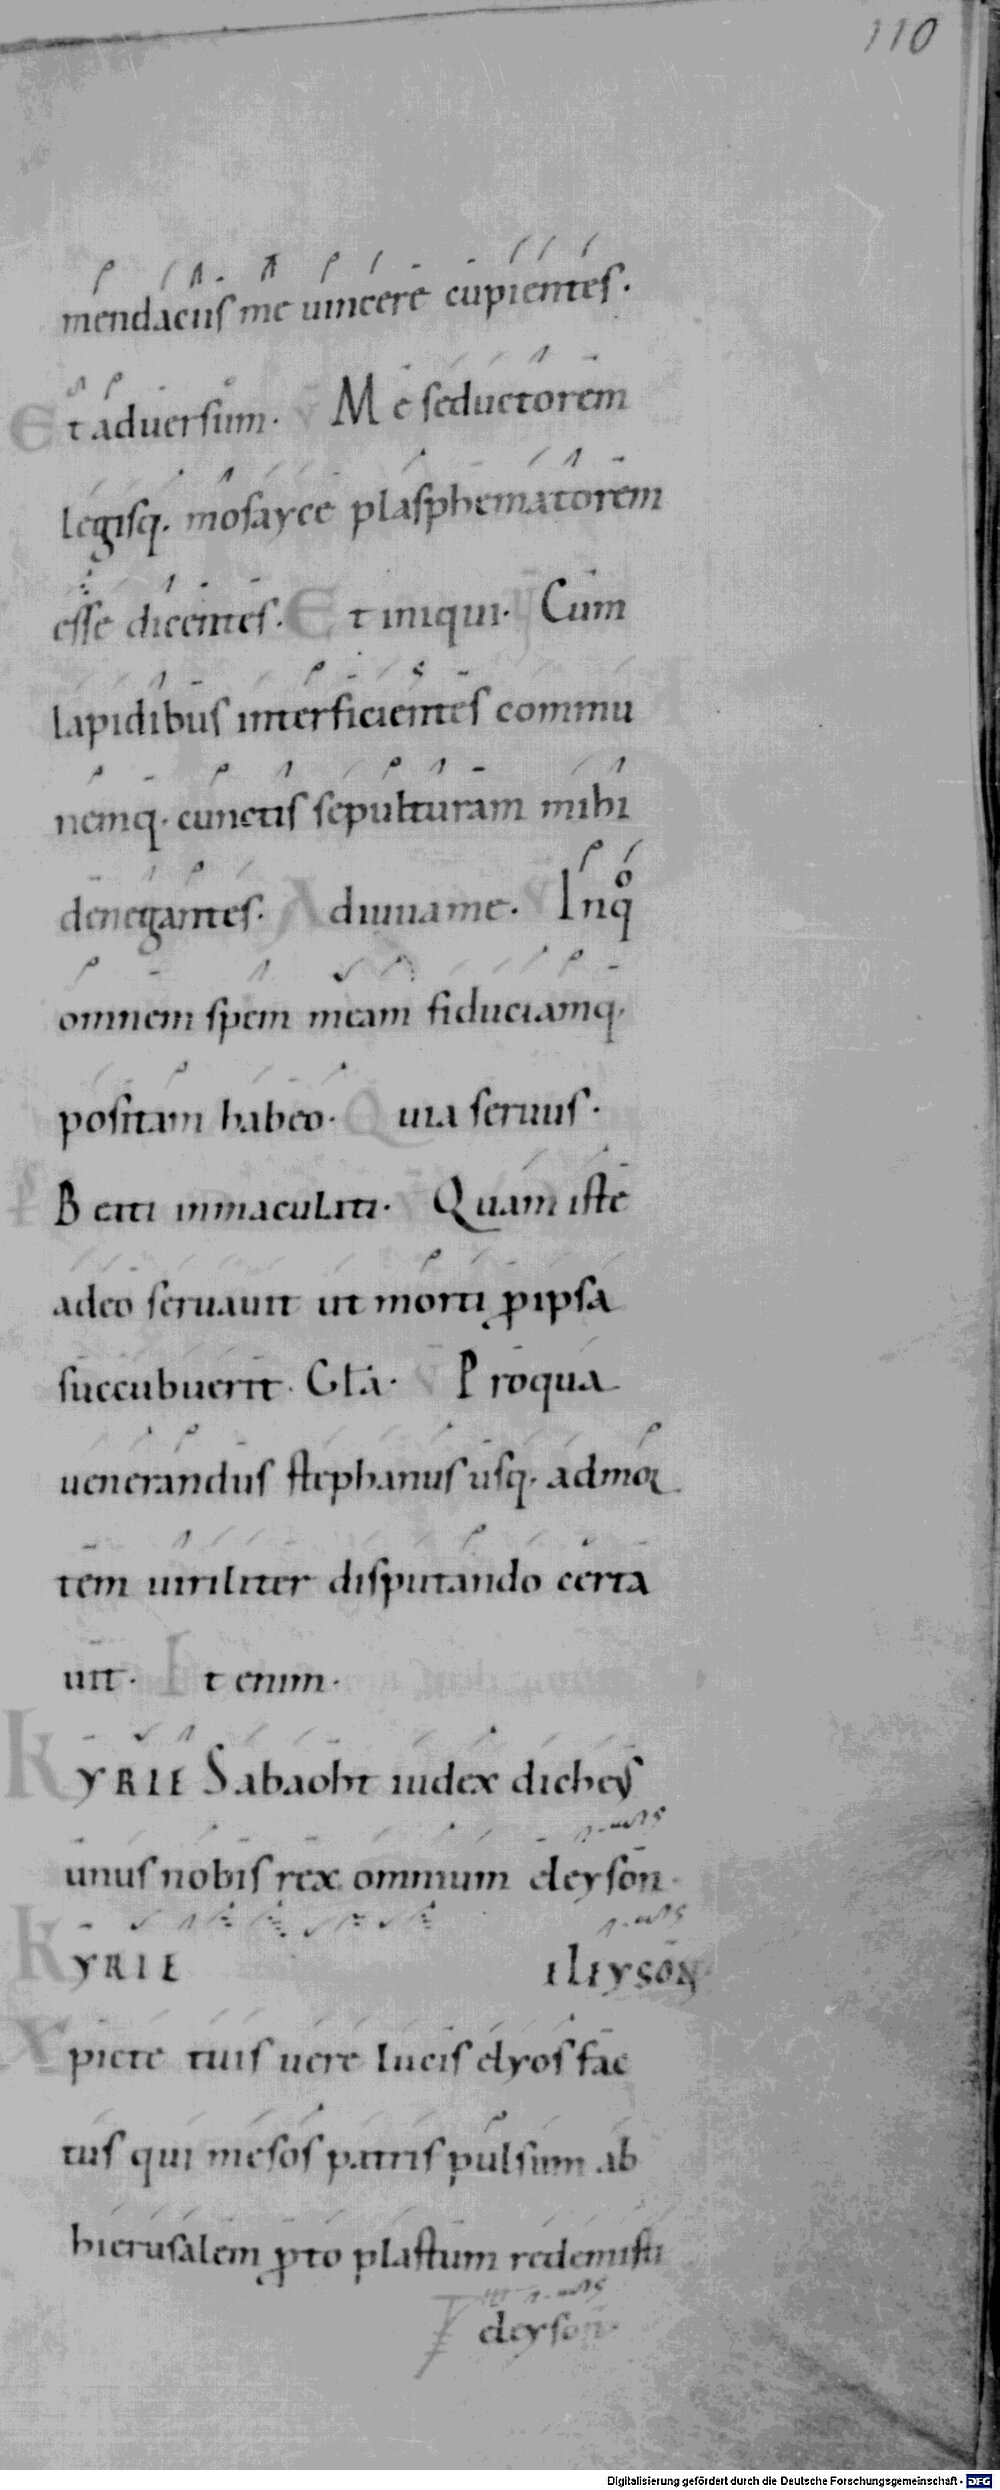 110
mendaciis me uincere cupientes.
Et aduersum. V Me seductorem
legisq. mosayce plasphematorem
esse dicentes. Et iniqui. V Cum
lapidibus interficientes commu
nemq. cunctis sepulturam mihi
denegantes. Adiuuame. V Inqͦ
omnem spem meam fiduciamq.
positam habeo. Quia seruus.
Ps Beati inmaculati. V Quam iste
adeo seruauit ut morti ꝓipsa
succubuerit. Glā. V Proqua
uenerandus stephanus usq. admor
tem uiriliter disputando certa
uit. Etenim.
KYRIE Sabaoht iudex dicheys
unus nobis rex omnium eleyson.
KYRIE ELEYSON
Xpicte tuis uere lucis elyos fac
tus qui mesos patris pulsum ab
hierusalem ꝓto plastum redemisti
eleyson.
Digitalisierung gefördert durch die Deutsche Forschungsgemeinschaft - DFG